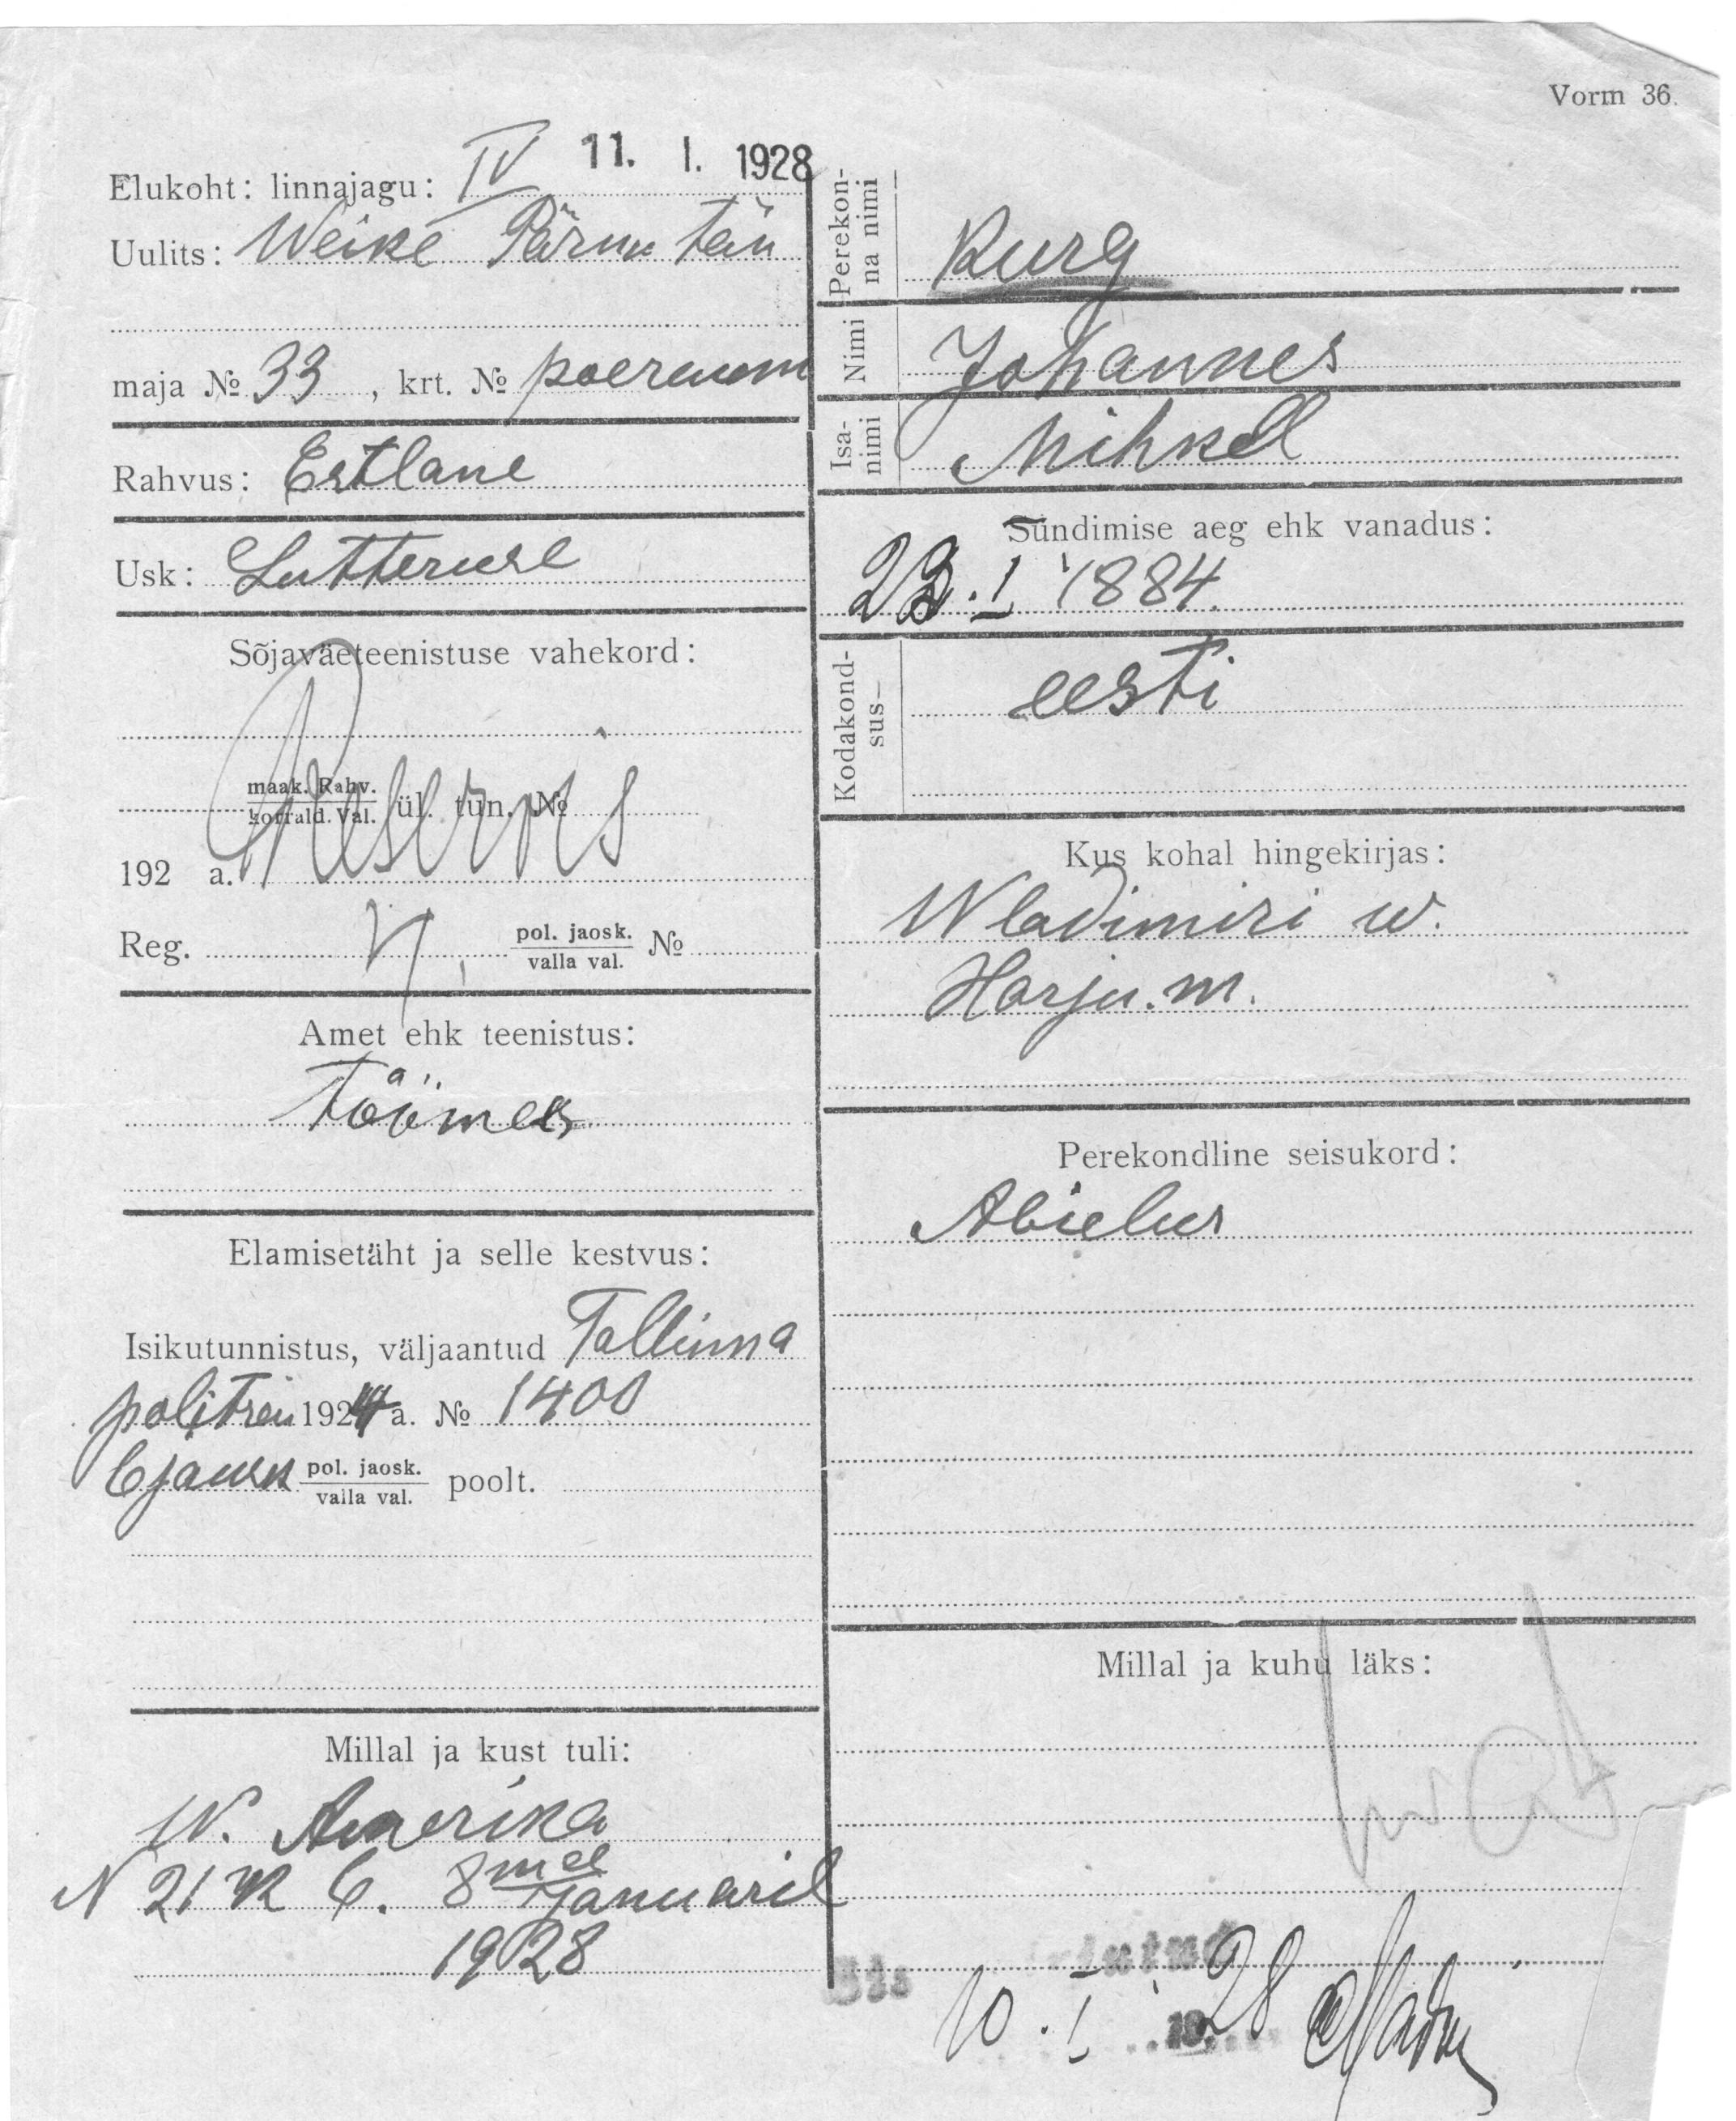 Vorm 36.
11. I. 1928
Elukoht: linnajagu: IV
Uulits: Weike Pärnu tän
maja № 33, krt. № poeruum
Rahvus: Estlane
Usk: Lutteruse
Sõjaväeteenistuse vahekord:
maak. Rahv.
korrald. Val. ül. tun. №
192 a. Reservis
Reg. pol. jaosk. №
valla val.
Amet ehk teenistus:
töömes
Elamisetäht ja selle kestvus:
Isikutunnistus, väljaantud Tallinna
politsei 1924 a. № 1400
6 jausk pol. jaosk. poolt.
valla val.
Millal ja kust tuli:
W. Amerika
N 21 k 6. 8mel januaril
1928
Perekon-
na nimi
Kurg
Nimi Johannes
Isa-
nimi Mihkel
Sündimise aeg ehk vanadus:
23. I 1884.
Kodakond-
sus— eesti
Kus kohal hingekirjas:
Wladimiri w.
Harju. m.
Perekondline seisukord:
Abielus
Millal ja kuhu läks:
10. I 28